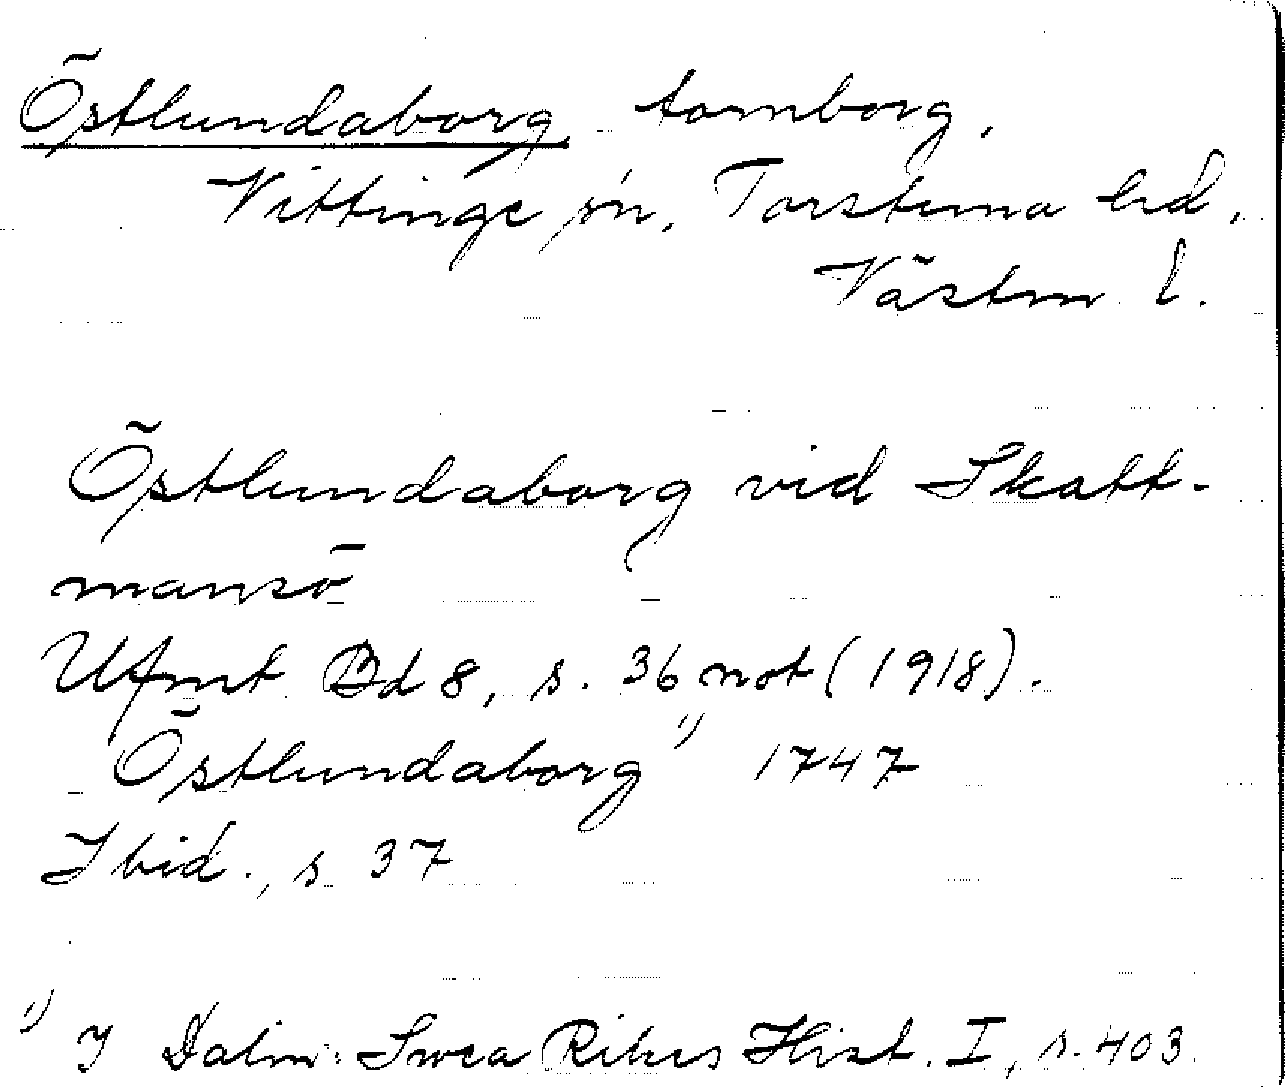 Östlundaborg, fornborg,
Vittinge sn, Torstuna hd,
Västm l.
Östlundaborg vid Skatt-
mansö
Ufmt Bd 8, s. 36 not (1918).
Östlundaborg ¹⁾ 1747
Ibid., s 37
¹⁾ I Dalin: Swea Rikes Hist. I, s. 403.